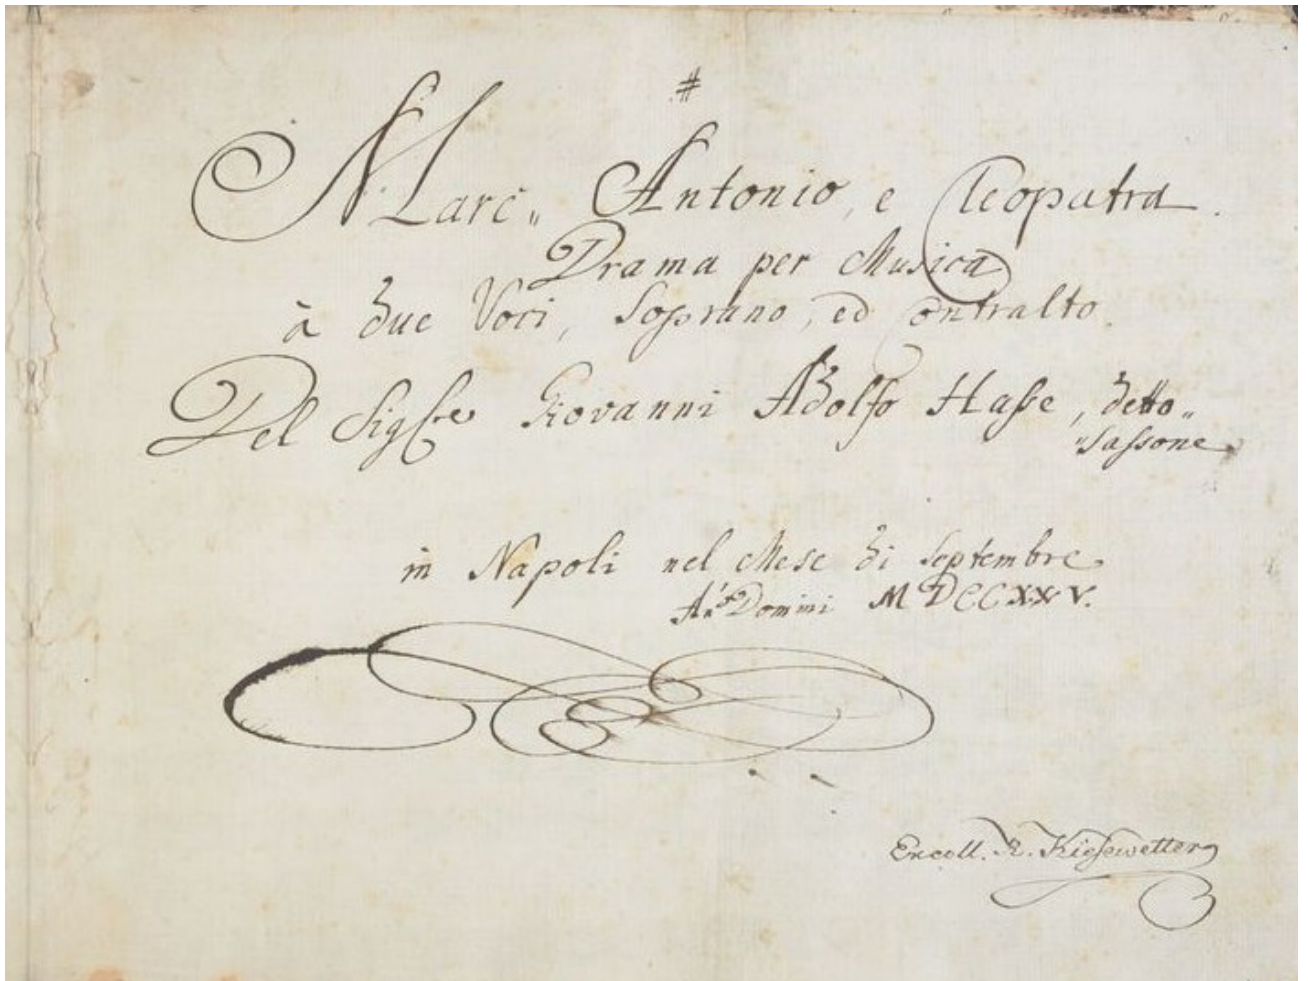 #
Marc„ Antonio, e Cleopatra.
Drama per Musica
à due Voci, Soprano, ed Contralto.
Del Sig:re Giovanni Adolfo Hasse, detto„
„Sassone
in Napoli nel Mese di Septembre
An: Domini MDCCXXV.
Ex coll. R. Kiesewetter